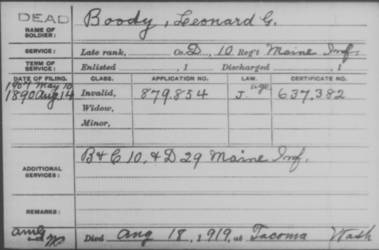 DEAD
NAME OF SOLDIER: Boody, Leonard G.
SERVICE: Late rank, Co. D, 10 Reg't Maine Inf.
TERM OF SERVICE: Enlisted , 1 Discharged , 1
DATE OF FILING. CLASS. APPLICATION NO. LAW. CERTIFICATE NO.
1907 May 10 age
1890 Aug 14 Invalid, 879,854 J. 637,382
Widow,
Minor,
ADDITIONAL SERVICES: B & C 10, & D 29 Maine Inf.
REMARKS:
Died Aug 18, 1919, at Tacoma Wash